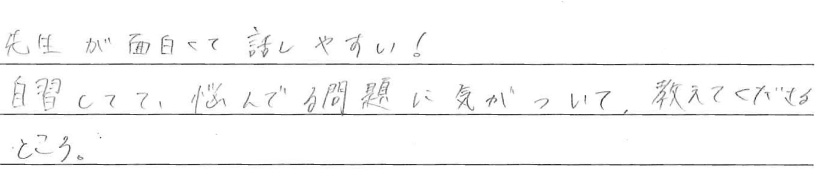 先生が面白くて話しやすい!
自習してて、悩んでる問題に気がついて、教えてくださる
ところ。